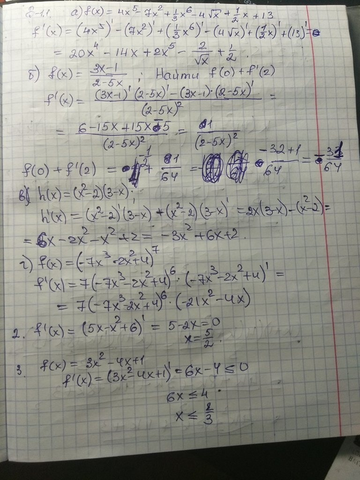 а) f(x) = 4x⁵ - 7x² + 1/3 x⁶ - 4√x + 1/2 x + 13
f'(x) = (4x⁵)' - (7x²)' + (1/3 x⁶)' - (4√x)' + (1/2 x)' + (13)' =
= 20x⁴ - 14x + 2x⁵ - 2/√x + 1/2.
б) f(x) = (3x-1)/(2-5x); Найти f(0) + f'(2)
f'(x) = ((3x-1)'(2-5x) - (3x-1)·(2-5x)')/(2-5x)² =
= (6-15x+15x-5)/(2-5x)² = 1/(2-5x)²
f(0) + f'(2) = -1/2 + 1/64 = (-32+1)/64 = -31/64
в) h(x) = (x²-2)(3-x);
h'(x) = (x²-2)'(3-x) + (x²-2)(3-x)' = 2x(3-x) - (x²-2) =
= 6x - 2x² - x² + 2 = -3x² + 6x + 2.
г) f(x) = (-7x³-2x²+4)⁷
f'(x) = 7(-7x³-2x²+4)⁶ · (-7x³-2x²+4)' =
= 7(-7x³-2x²+4)⁶ · (-21x²-4x)
2. f'(x) = (5x-x²+6)' = 5-2x = 0
x = 5/2.
3. f(x) = 3x²-4x+1
f'(x) = (3x²-4x+1)' = 6x-4 ≤ 0
6x ≤ 4
x ≤ 2/3